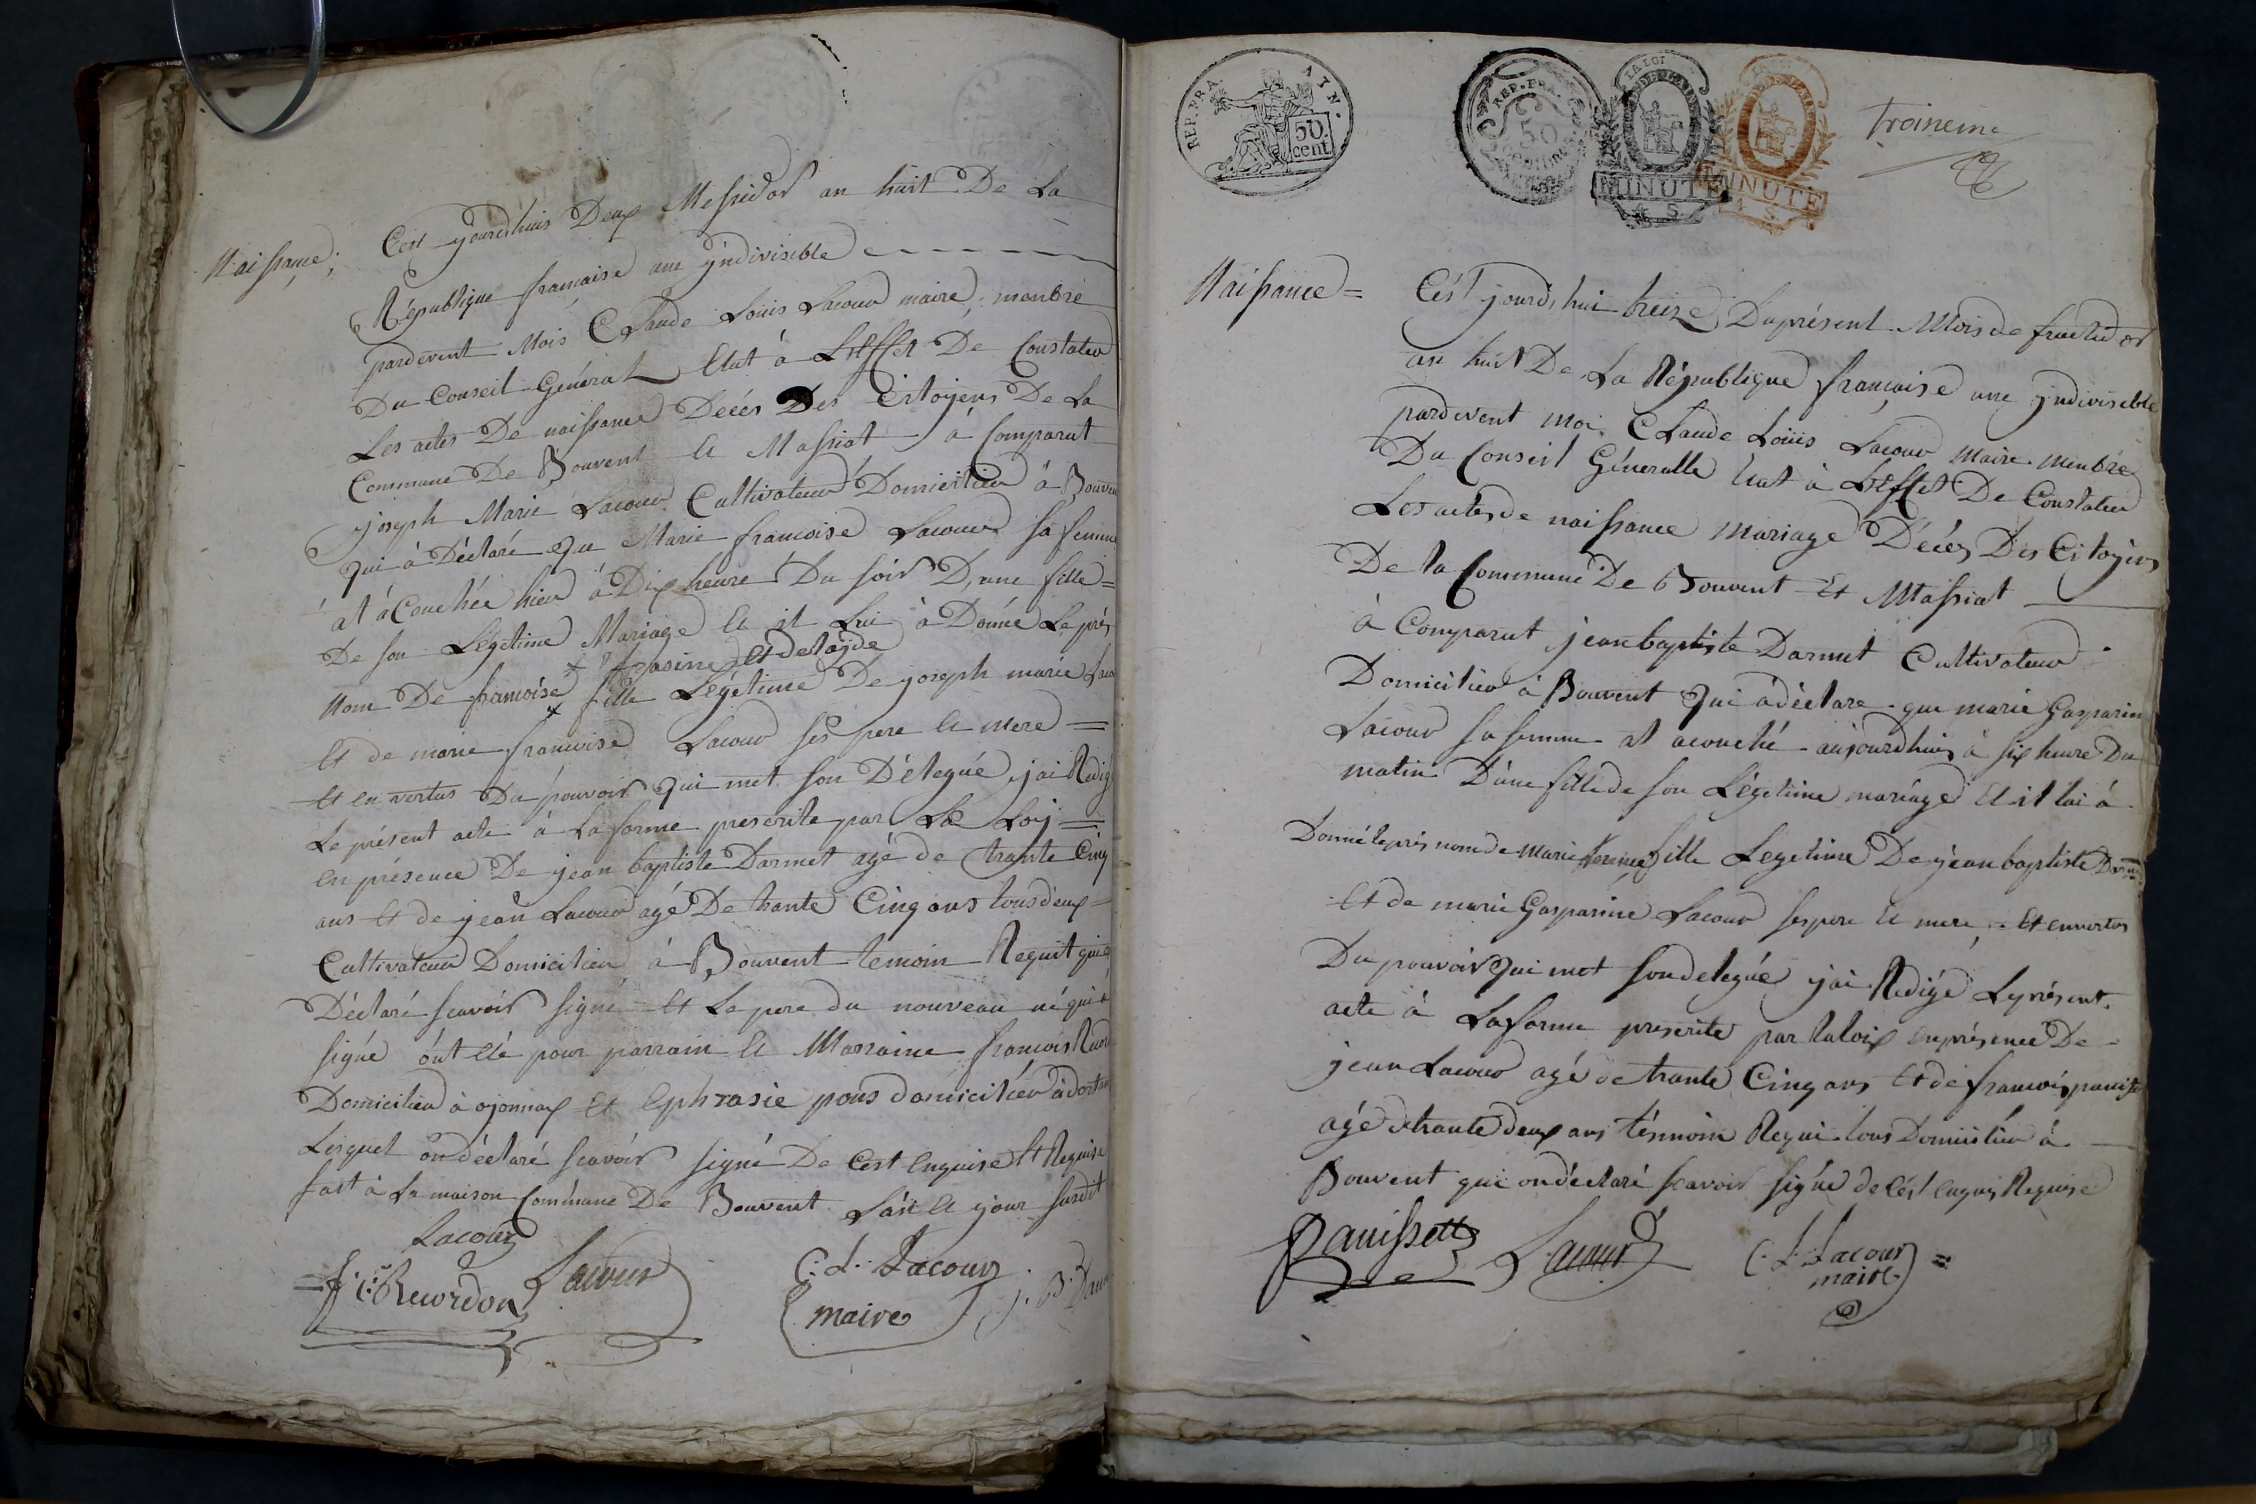 Naissance;
Cest jourdhuis Deux Messidor an huit De La
République francaise une yndivisible
pardevent Mois Claude Loüis Lacour maire, menbre
Du Conseil Général Etat à L'Effet De Constater
Les actes De naissance Décés Des Citoyens De La
Commune De Bouvent Et Massiat à Comparut
joseph Marie Lacour Cultivateur Domicilier à Bouven
Qui à Déclaré Que Marie francoise Lacour sa femme
at àCouchée hier à Dix heure Du soir D,une fille =
De son Légétime Mariage Et it Lui à Donné Le prés
Et delaÿde
Nom De francoise fille Légétime De joseph marie Lacou
Et de marie francoise Lacour ses pere Et mere =
Et en vertus Du pouvoir Qui met son Délegué, jai Redigé
Le présent acte à La forme prescrite par La Loy =
en présence De jean baptiste Darmet agé de trante Cinq
ans Et de jean Lacour agé De trante Cinq ans tous deux =
Cultivateur Domicilier à Bouvent temoin Requit qui on
Déclaré scavoir signé Et Le pere du nouveau né qui a
signé ónt été pour parrain Et Marraine francois
Domicilier à ojonnax Et Ephrasie pons domicilier à dortan
Lesquel on déclaré scavoir signé De Cest Enquise Et Requise
fait à La maison Commune De Bouvent Lán Et jour susdit
Lacour
Lacour
C. L. Lacour
maire
REP. FRA. AIN.
50. cent
REP. FRA.
50
centimes
LA LOI
MINUTE
MINUTE
Naissance =
Cést jourds hui treize Du présent Mois de fructidor
an huit De La République francaise une yndivisible
pardevent moi Claude Loüis Lacour maire menbre
Du Conseil Géneralle Etat à L'Effet De Constater
Les actes de naissance mariage Décés Des Citoyens
De la Commune De Bouvent Et Massiat
à Comparut jean baptiste Darmet Cultivateur
Domicilier à Bouvent Qui à déclare que marie Gasparine
Lacour sa femme at acouché aujourdhuis à six heure Du
matin D'une fille de son Légétime mariage Et it lui á
Donné le prés nom de marie fille Legetime De jean baptiste Darmet
Et de marie Gasparine Lacour ses pere Et mere, = Et en vertus
Du pouvoir Qui met son delegué jai Redigé Le présent
acte à La forme prescrite par la loix en présence De
jean Lacour agé de trante Cinq ans Et de francois panisset
agé de trante deux ans témnoin Requi tous Domicilier à
Bouvent qui on déclaré scavoir signé de Cést Enquis Requise
Panissett
Lacour
C. L. Lacour =
maire